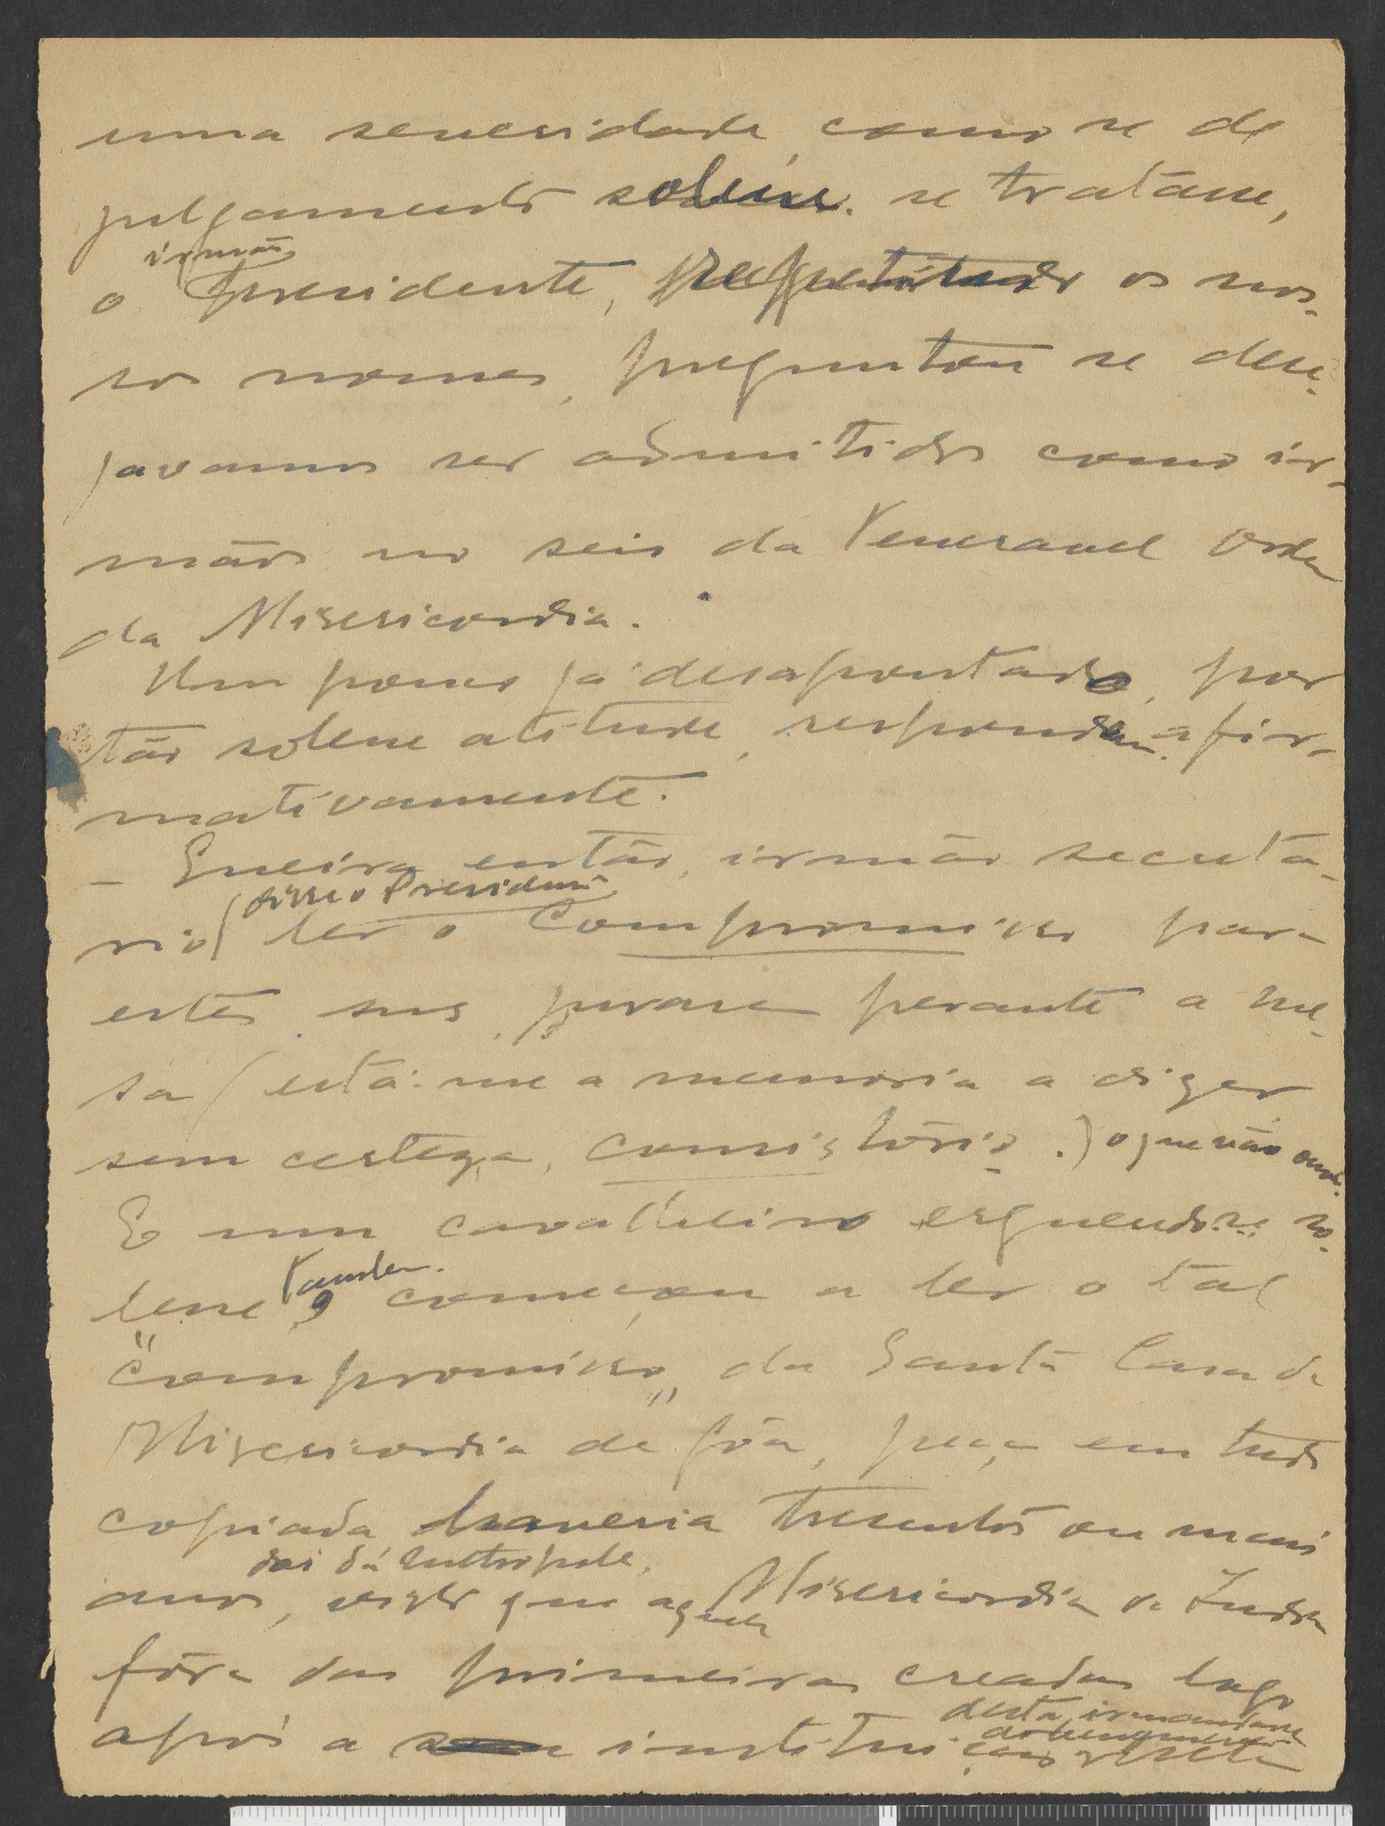 uma severidade como se de
julgamento solene se tratásse,
irmão
o Presidente, os nos-
sos nomes, preguntou se dese-
javamos ser admitidos como ir-
mãos no seio da Veneravel Ordem
da Misericordia.
Um pouco já desapontado, por
tão solene atitude, respondem afir-
mativamente.
- Queira então, irmão secretá-
disse o Presidente
rio ler o Compromisso para
estes snrs. jurarem perante a me-
sa (está-me a memoria a dizer
sem certeza, consistório.) o que não
E um cavalheiro erguendo-se so-
lene, começou a ler o tal
"compromisso" da Santa Casa da
Misericordia de Gôa, peça em tudo
copiada haveria tresentos ou mais
da da metropole,
anos, visto que aquela Misericordia da India
fôra das primeiras creadas logo
desta irmandade
após a instituição